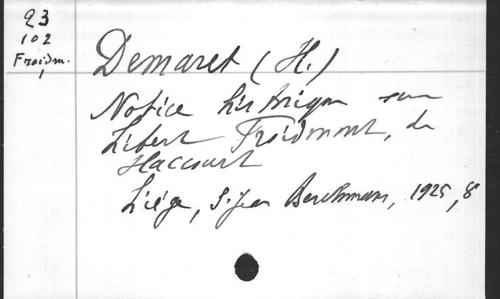 23
102
Froidm.
Demaret (H.)
Notice historique sur
Libert Froidmont, de
Haccourt
Liége, S. Jean Berchmans, 1925, 8°